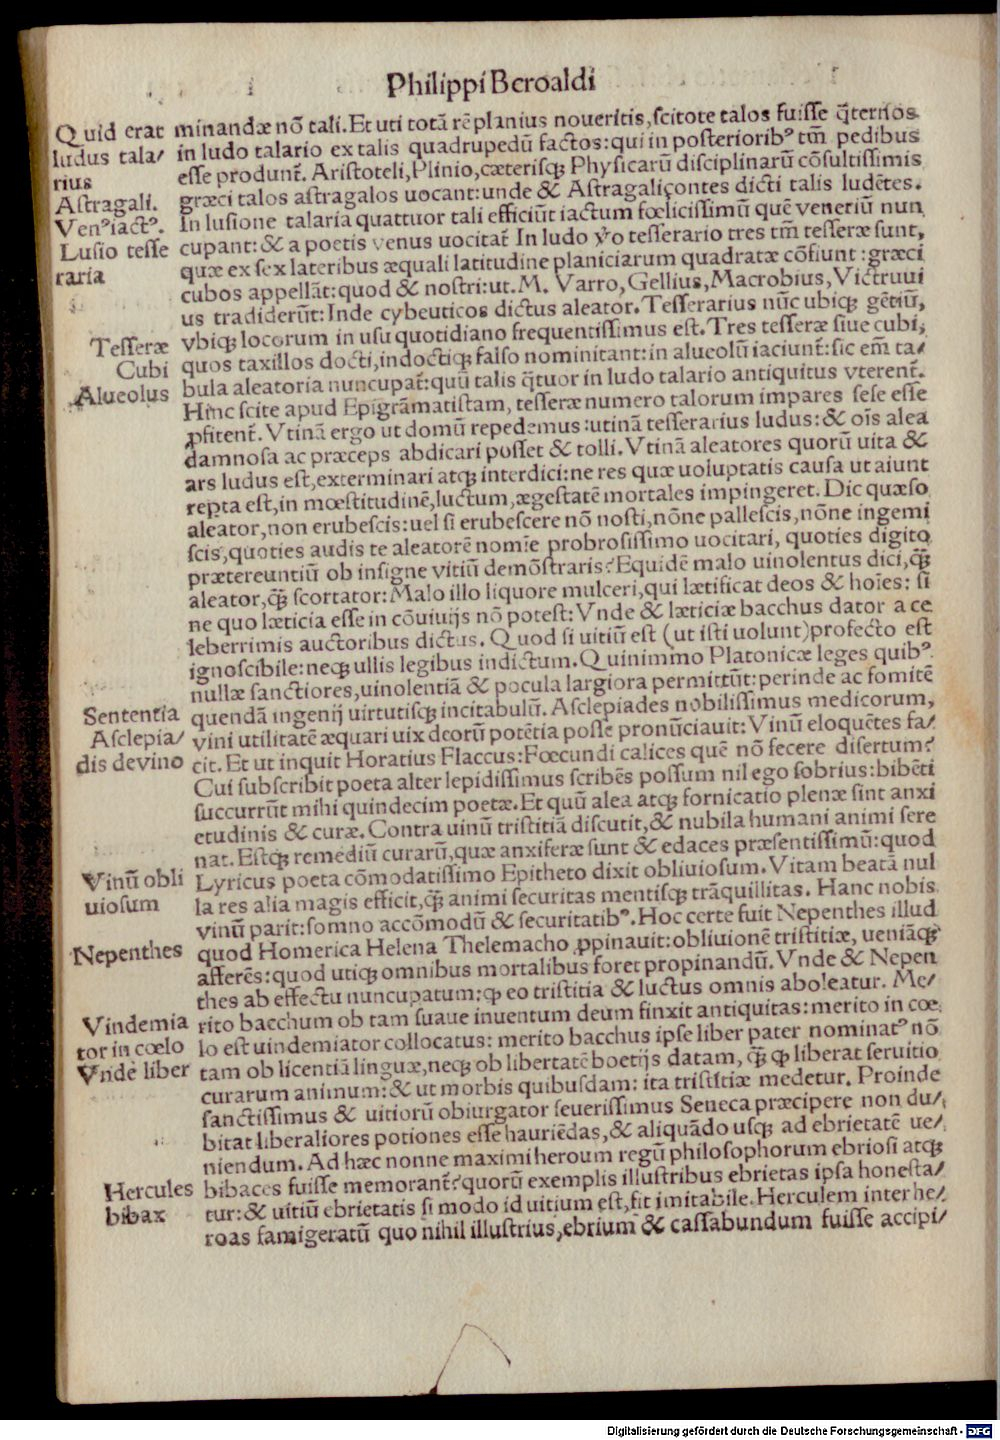 Philippi Beroaldi
Quid erat
ludus tala/
rius
Astragali.
Venꝰ iactꝰ.
Lusio tesse
raria
Tesseræ
Cubi
Alueolus
Sententia
Asclepia/
dis de vino
Vinū obli
uiosum
Nepenthes
Vindemia
tor in cœlo
Vnde liber
Hercules
bibax
minandæ nō tali. Et uti totā rē planius noueritis, scitote talos fuisse q̄ternos
in ludo talario ex talis quadrupedū factos: qui in posterioribꝰ tm̄ pedibus
esse produnt̄. Aristoteli, Plinio, cæterisqꝫ Physicarū disciplinarū cōsultissimis
græci talos astragalos uocant: unde & Astragaliçontes dicti talis ludētes.
In lusione talaria quattuor tali efficiūt iactum fœlicissimū quē veneriū nun
cupant: & a poetis venus uocitat̄ In ludo ṽo tesserario tres tm̄ tesseræ sunt,
quæ ex sex lateribus æquali latitudine planiciarum quadratæ cōfiunt: græci
cubos appellāt: quod & nostri: ut. M. Varro, Gellius, Macrobius, Victruui
us tradiderūt: Inde cybeuticos dictus aleator. Tesserarius nūc ubiqꝫ gētiū,
vbiqꝫ locorum in usu quotidiano frequentissimus est. Tres tesseræ siue cubi,
quos taxillos docti, indoctiqꝫ falso nominitant: in alueolū iaciunt̄: sic em̄ ta/
bula aleatoria nuncupat̄: quū talis q̄tuor in ludo talario antiquitus vterent̄.
Hinc scite apud Epigrāmatistam, tesseræ numero talorum impares sese esse
ꝓfitent̄. Vtinā ergo ut domū repedemus: utinā tesserarius ludus: & oīs alea
damnosa ac præceps abdicari posset & tolli. Vtinā aleatores quorū uita &
ars ludus est, exterminari atqꝫ interdici: ne res quæ uoluptatis causa ut aiunt
repta est, in mœstitudinē, luctum, ægestatē mortales impingeret. Dic quæso
aleator, non erubescis: uel si erubescere nō nosti, nōne pallescis, nōne ingemi
scis, quoties audis te aleatorē nomīe probrosissimo uocitari, quoties digito
prætereuntiū ob insigne vitiū demōstraris? Equidē malo uinolentus dici, qꝫ̄
aleator, qꝫ̄ scortator: Malo illo liquore mulceri, qui lætificat deos & hoīes: si
ne quo læticia esse in cōuiuijs nō potest: Vnde & læticiæ bacchus dator a ce
leberrimis auctoribus dictus. Quod si uitiū est (ut isti uolunt) profecto est
ignoscibile: neqꝫ ullis legibus indictum. Quinimmo Platonicæ leges quibꝰ
nullæ sanctiores, uinolentiā & pocula largiora permittūt: perinde ac fomitē
quendā ingenij uirtutisqꝫ incitabulū. Asclepiades nobilissimus medicorum,
vini utilitatē æquari uix deorū potētia posse pronūciauit: Vinū eloquētes fa/
cit. Et ut inquit Horatius Flaccus: Fœcundi calices quē nō fecere disertum?
Cui subscribit poeta alter lepidissimus scribēs possum nil ego sobrius: bibēti
succurrūt mihi quindecim poetæ. Et quū alea atqꝫ fornicatio plenæ sint anxi
etudinis & curæ. Contra uinū tristitiā discutit, & nubila humani animi sere
nat. Estqꝫ remediū curarū, quæ anxiferæ sunt & edaces præsentissimū: quod
Lyricus poeta cōmodatissimo Epitheto dixit obliuiosum. Vitam beatā nul
la res alia magis efficit, qꝫ̄ animi securitas mentisqꝫ trāquillitas. Hanc nobis
vinū parit: somno accōmodū & securitatibꝰ. Hoc certe fuit Nepenthes illud
quod Homerica Helena Thelemacho ꝓpinauit: obliuionē tristitiæ, ueniāqꝫ
afferēs: quod utiqꝫ omnibus mortalibus foret propinandū. Vnde & Nepen
thes ab effectu nuncupatum: ꝙ eo tristitia & luctus omnis aboleatur. Me/
rito bacchum ob tam suaue inuentum deum finxit antiquitas: merito in cœ
lo est uindemiator collocatus: merito bacchus ipse liber pater nominatꝰ nō
tam ob licentiā linguæ, neqꝫ ob libertatē boetijs datam, qꝫ̄ ꝙ liberat seruitio
curarum animum: & ut morbis quibusdam: ita tristitiæ medetur. Proinde
sanctissimus & uitiorū obiurgator seuerissimus Seneca præcipere non du/
bitat liberaliores potiones esse hauriēdas, & aliquādo usqꝫ ad ebrietatē ue/
niendum. Ad hæc nonne maximi heroum regū philosophorum ebriosi atqꝫ
bibaces fuisse memorant̄? quorū exemplis illustribus ebrietas ipsa honesta/
tur: & uitiū ebrietatis si modo id uitium est, fit imitabile. Herculem inter he/
roas famigeratū quo nihil illustrius, ebrium & cassabundum fuisse accipi/
Digitalisierung gefördert durch die Deutsche Forschungsgemeinschaft - DFG